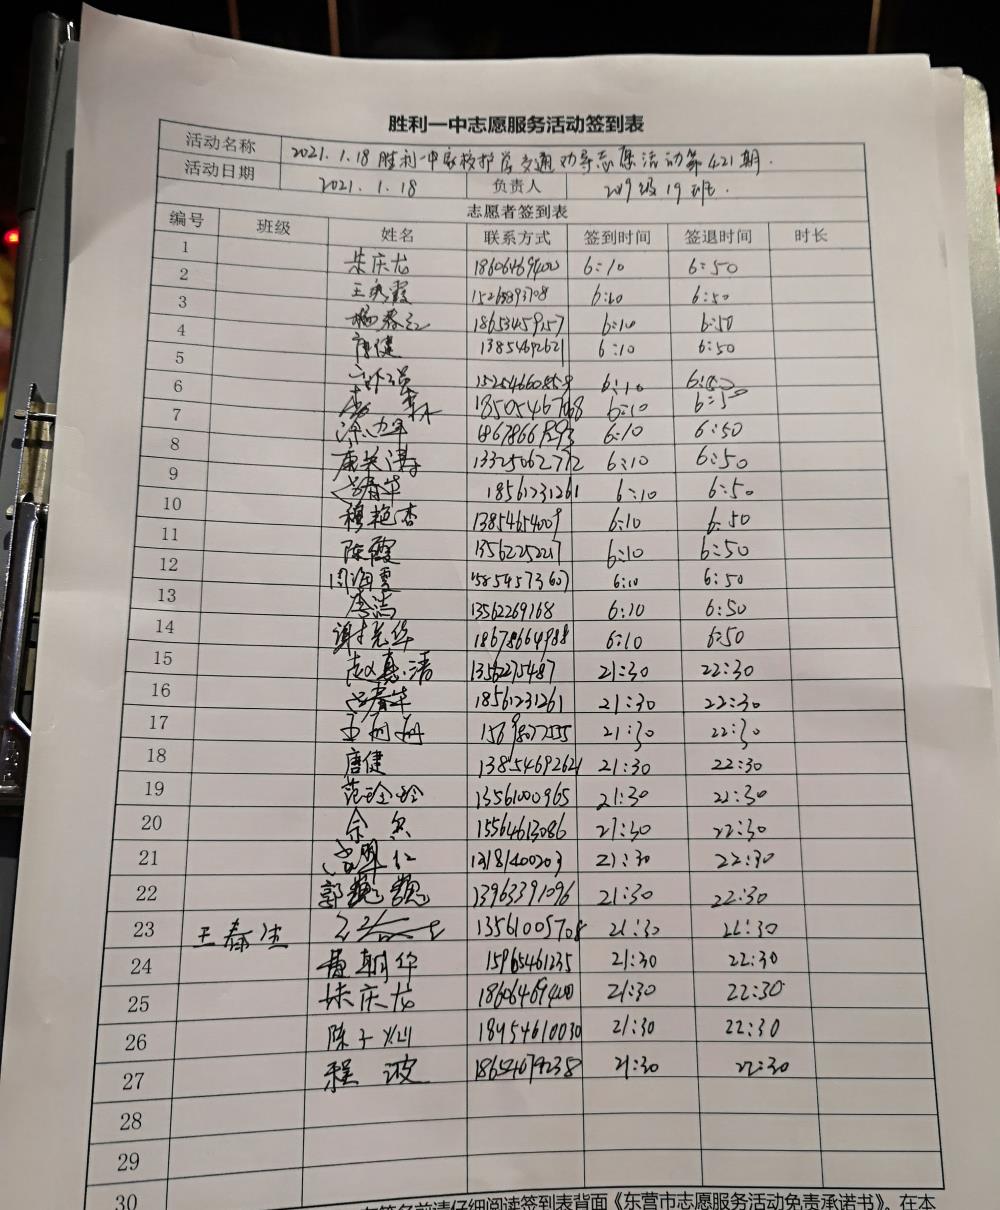 胜利一中志愿服务活动签到表
活动名称 2021.1.18胜利一中家校护学交通劝导志愿活动第421期.
活动日期 2021.1.18 负责人 2019级19班.
志愿者签到表
编号 班级 姓名 联系方式 签到时间 签退时间 时长
1 朱庆龙 18606469400 6:10 6:50
2 王秀霞 6:10 6:50
3 18653459157 6:10 6:50
4 唐健 13854692621 6:10 6:50
5 6:10
6 18505467068 6:10 6:50
7 6:10 6:50
8 13325062772 6:10 6:50
9 吕春华 18561231261 6:10 6:50
10 穆艳杏 13854654009 6:10 6:50
11 陈霞 13562252217 6:10 6:50
12 周海霞 15854573607 6:10 6:50
13 李洁 13562269168 6:10 6:50
14 谢光华 18678664988 6:10 6:50
15 赵真清 13562275487 21:30 22:30
16 吕春华 18561231261 21:30 22:30
17 王珊珊 21:30 22:30
18 唐健 13854692621 21:30 22:30
19 范玲玲 13561000965 21:30 22:30
20 15564613086 21:30 22:30
21 21:30 22:30
22 郭巍巍 13963391096 21:30 22:30
23 王春生 13561005708 21:30 22:30
24 黄朝华 15965461235 21:30 22:30
25 朱庆龙 18606469400 21:30 22:30
26 陈子灿 18954610030 21:30 22:30
27 程波 18654679238 21:30 22:30
28
29
30
签名前请仔细阅读签到表背面《东营市志愿服务活动免责承诺书》。在本